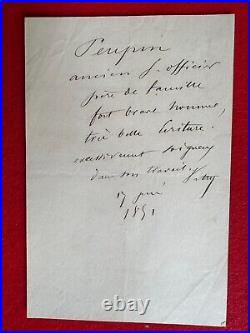 Peupin
ancien s. officier
père de famille
fort brave homme,
très belle écriture.
excessivement soigneux
dans son travail.
17
1851